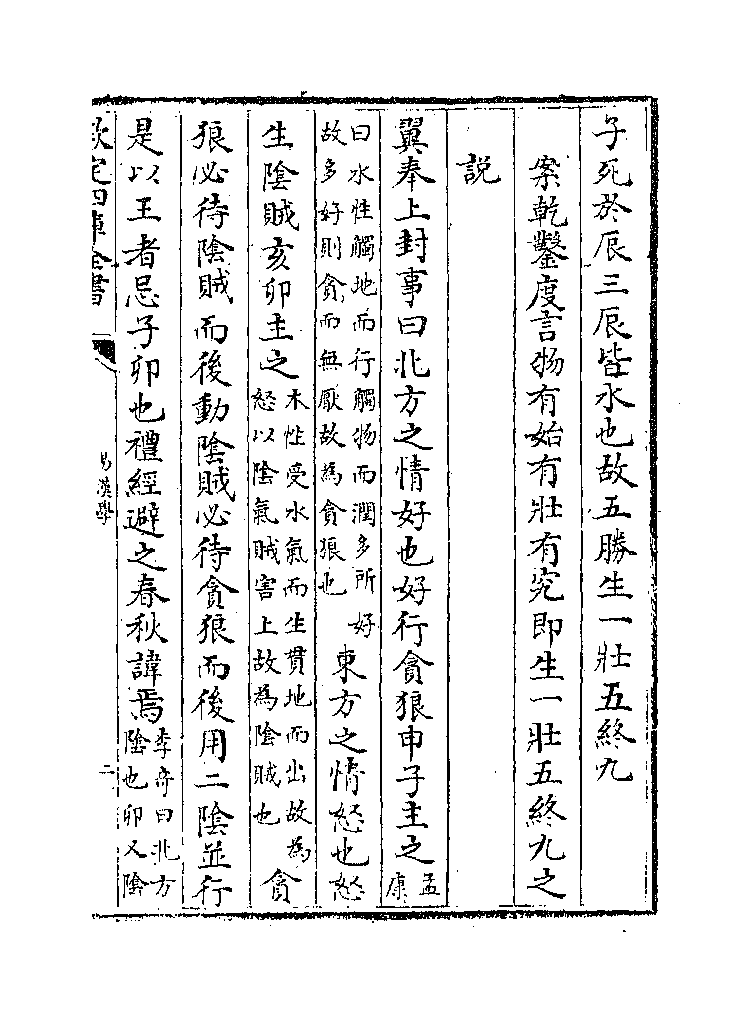 子死於辰三辰皆水也故五勝生一壯五終九
案乾鑿度言物有始有壯有究即生一壯五終九之
說
翼奉上封事曰北方之情好也好行貪狼申子主之孟康
曰水性觸地而行觸物而潤多所好故多好則貪而無厭故為貪狼也東方之情怒也怒
生陰賊亥卯主之木性受水氣而生貫地而出故為怒以陰氣賊害上故為陰賊也貪
狼必待陰賊而後動陰賊必待貪狼而後用二陰並行
是以王者忌子卯也禮經避之春秋諱焉李奇曰北方陰也卯又陰
欽定四庫全書
易漢學
二